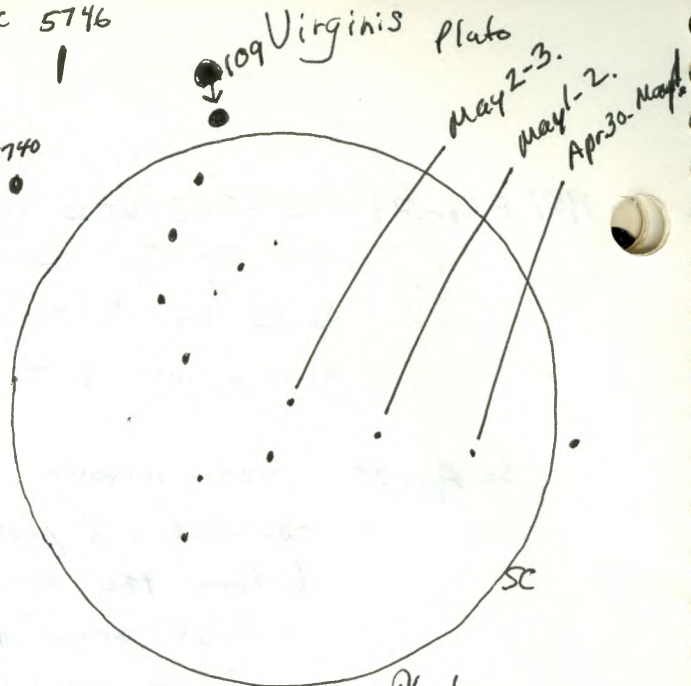 C 5746
109 Virginis Plato
May 2-3.
May 1-2.
Apr.30-May 1.
740
SC